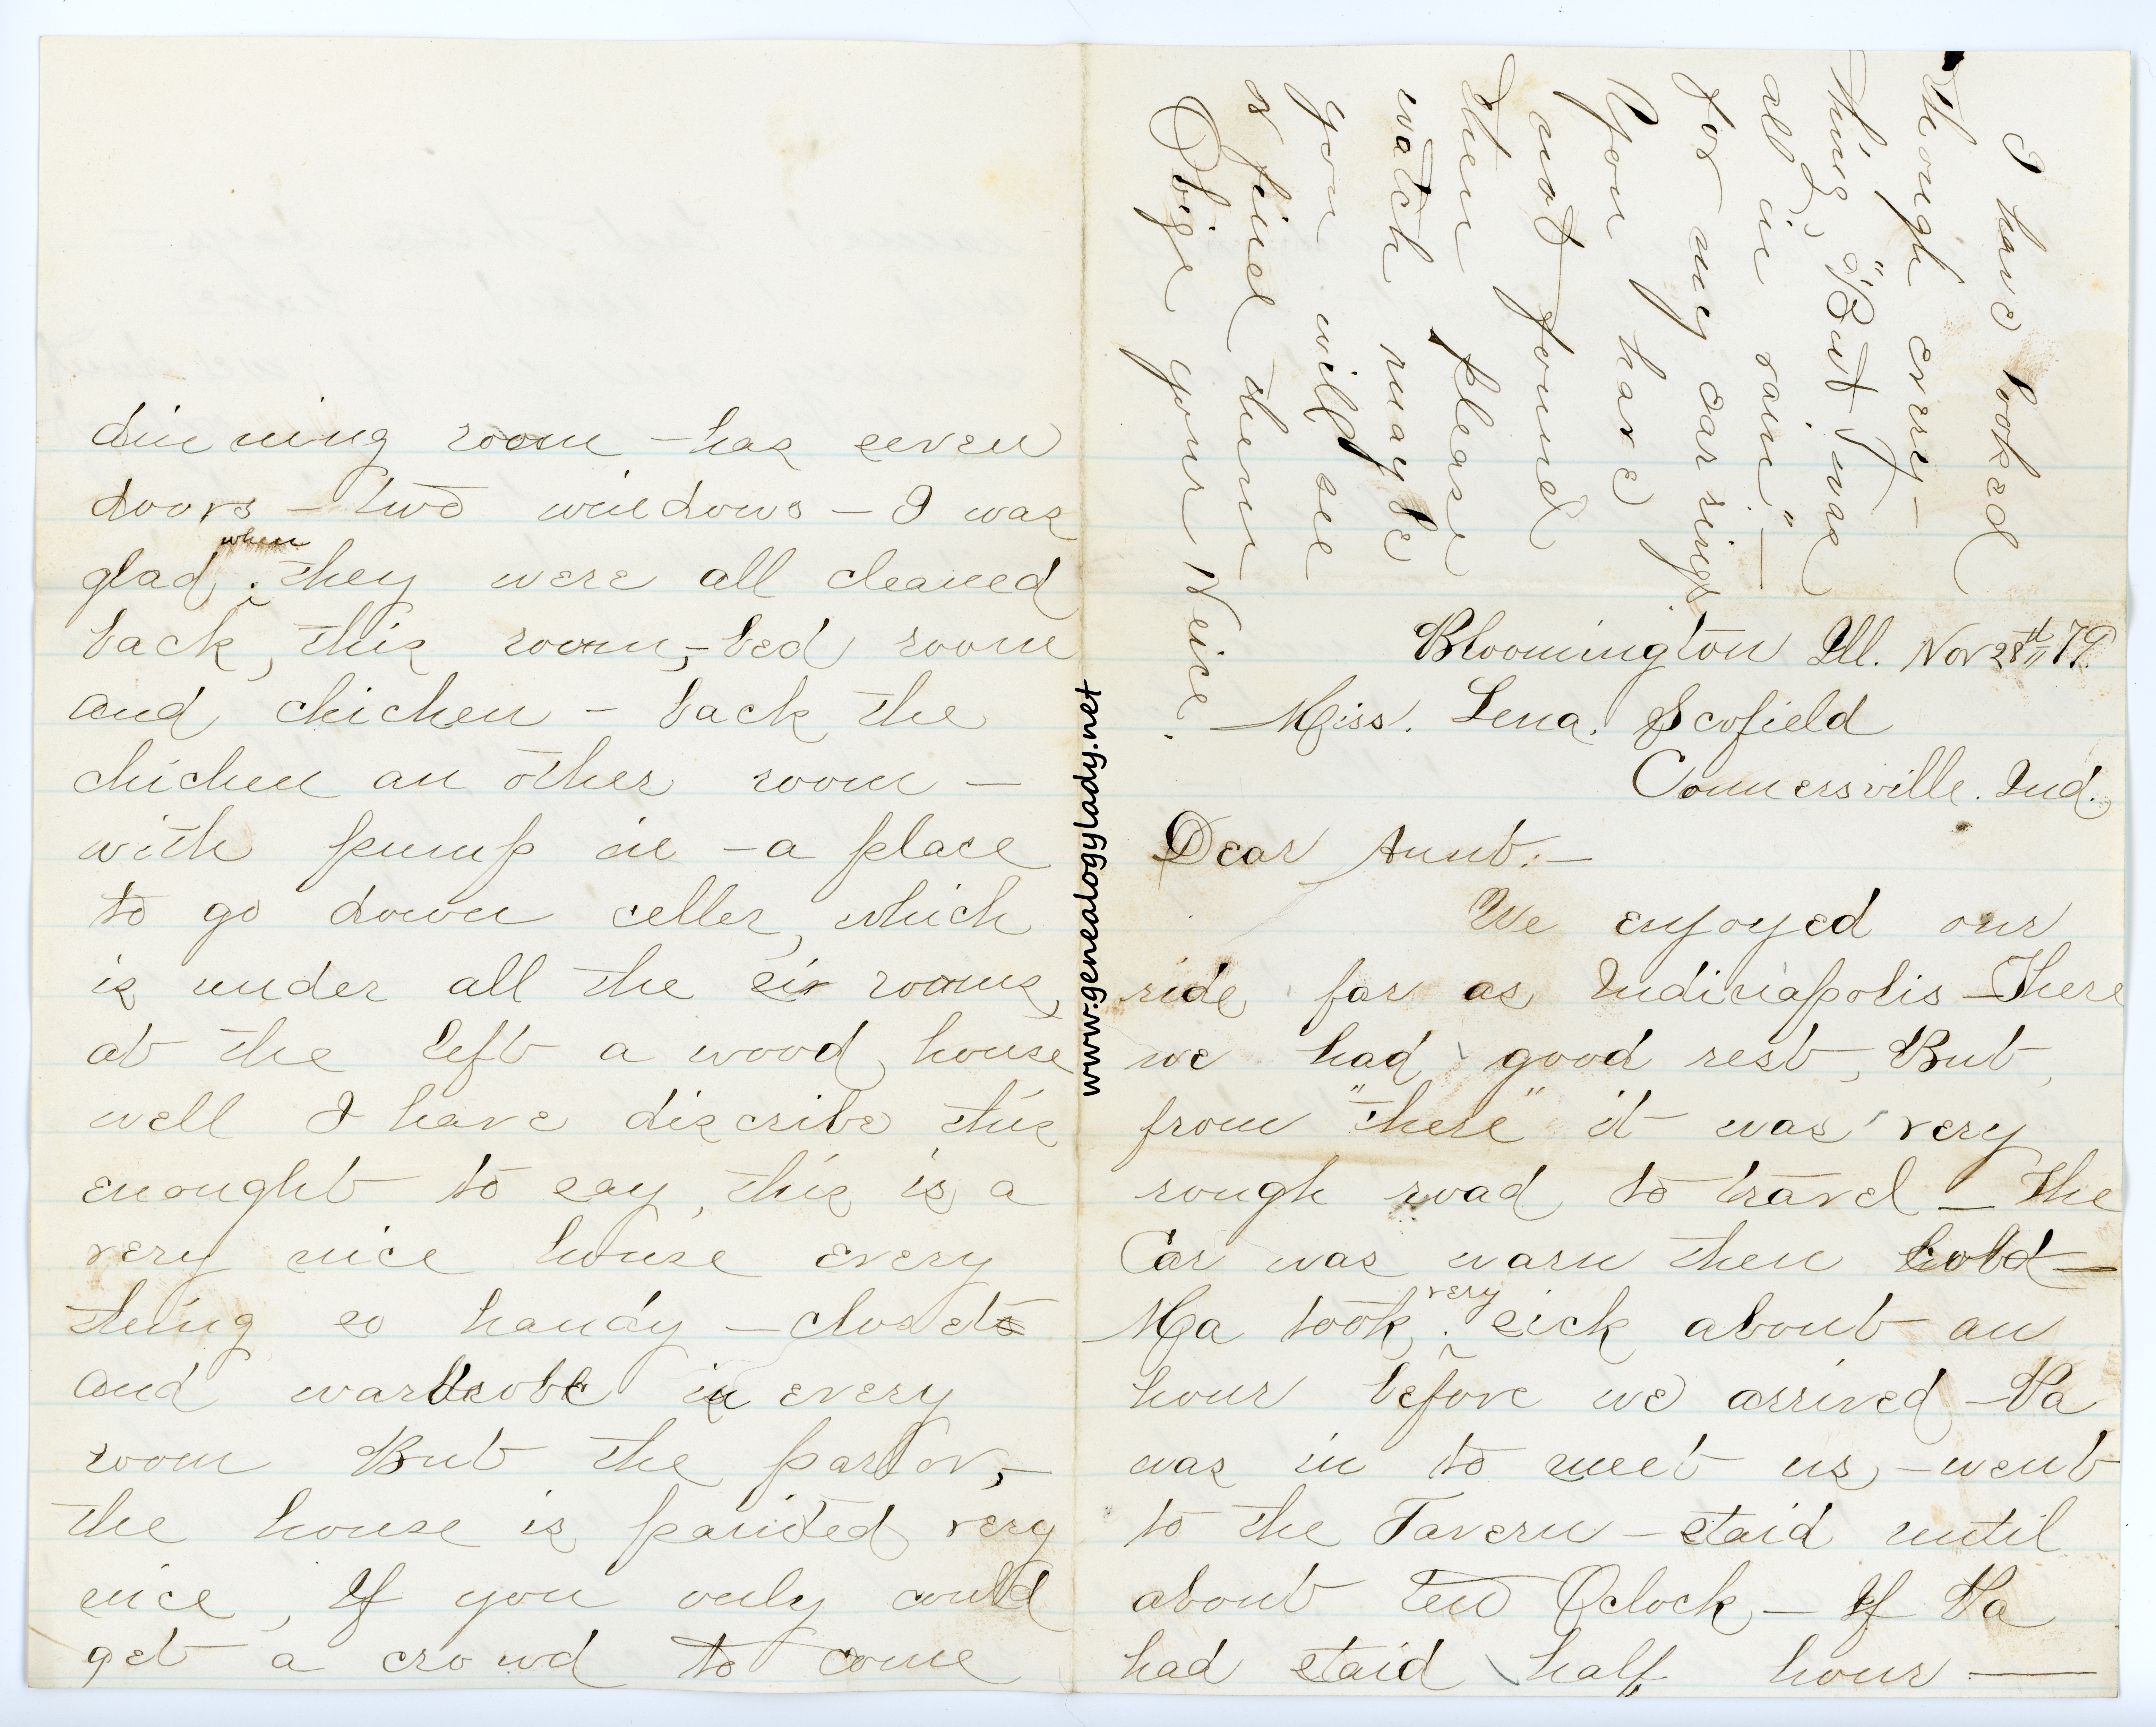 I have looked
through every—
thing, "But I was
all in vain." —
for my ear rings
If you have
not found
them please
watch may be
you will see
& find them
Oblige your Neice.
Bloomington Ill. Nov 28th 79.
Miss. Lena. Scofield
Connersville. Ind.
Dear Aunt:—
We enjoyed our
ride far as Indinapolis—There
we had good rest, But,
from "there" it was very
rough road to travel — the
Car was warm then cold—
Ma took very sick about an
hour before we arrived—Pa
was in to meet us,—went
to the Tavern—staid until
about ten Oclock,—If Pa
had staid half hour —
dinning room—has seven
doors—two windows—I was
glad when they were all cleaned
back, this room,—bed room
and chichen—back the
chichen an other room—
with pump in—a place
to go down celler, which
is under all the six rooms,
at the left a wood, house
well I have discribe this
enought to say, this is a
very nice house every
thing so handy—closets
and wardrobe in every
room But the parlor,—
the house is painted very
nice, If you only could
get a crowd to come
www.genealogylady.net